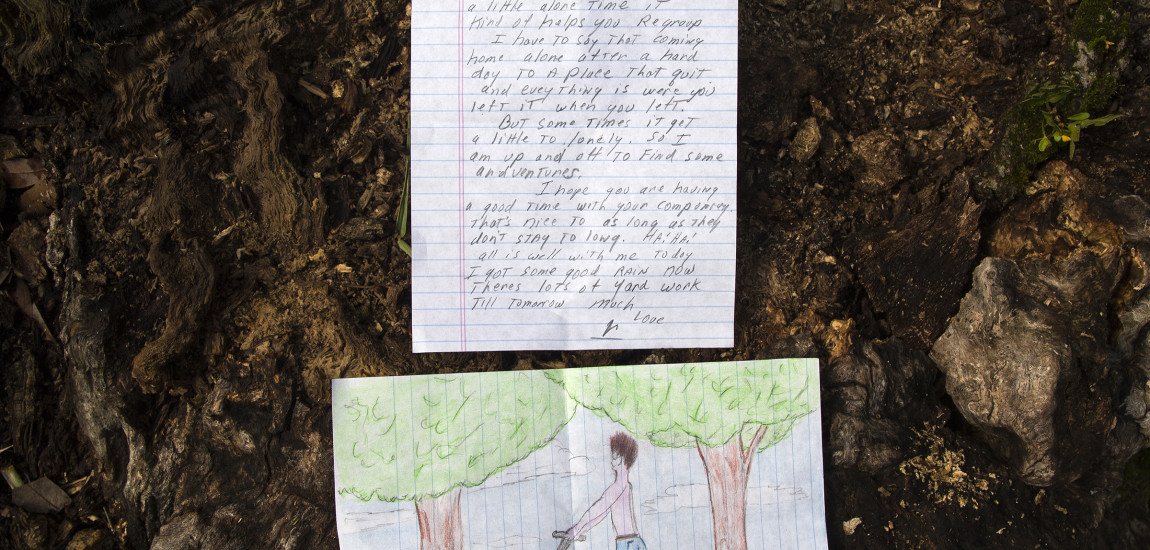 a little alone time it
kind of helps you Regroup
I have To say That coming
home alone after a hard
day To A place That quit
and eveyThing is were you
left iT when you left.
BuT some Times it get
a little To lonely. So I
am up and off To Find some
andventures.
I hope you are having
a good Time with your compancey
That's nice To as long as They
don't sTAy To long. HA! HA!
all is well with me Today
I got some good RAin now
Theres lots of Yard work
Till Tomorrow Much
Love